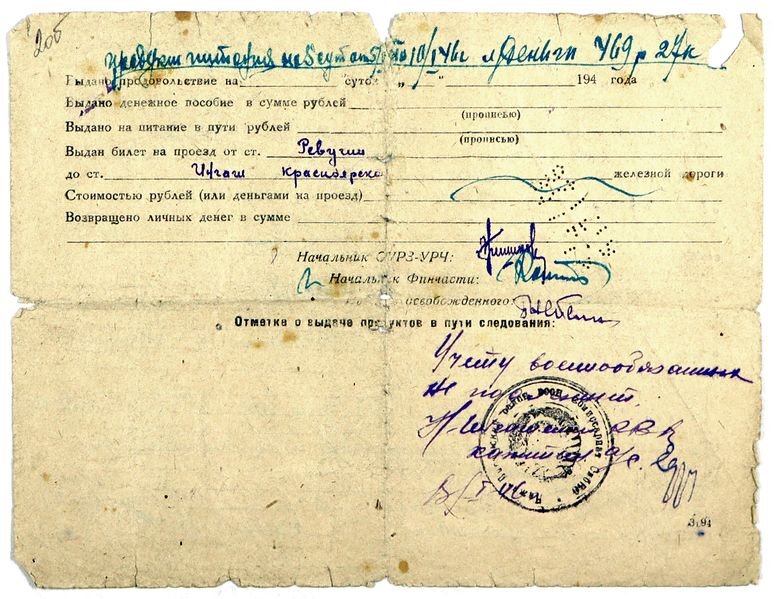 206
продукт питания на 5 суток по 10/I 46г и Деньги 469 р 27к
Выдано продовольствие на суток „ “ 194 года
Выдано денежное пособие в сумме рублей
(прописью)
Выдано на питание в пути рублей
(прописью)
Выдан билет на проезд от ст. Ревучий
до ст. Ингаш Красноярско железной дороги
Стоимостью рублей (или деньгами на проезд)
Возвращено личных денег в сумме
Начальник ОУРЗ-УРЧ:
Начальник Финчасти:
освобожденного:
Отметка о выдаче продуктов в пути следования:
Учету военнообязанных
не подлежит.
РВК
капитан а/с
I 46
3.94